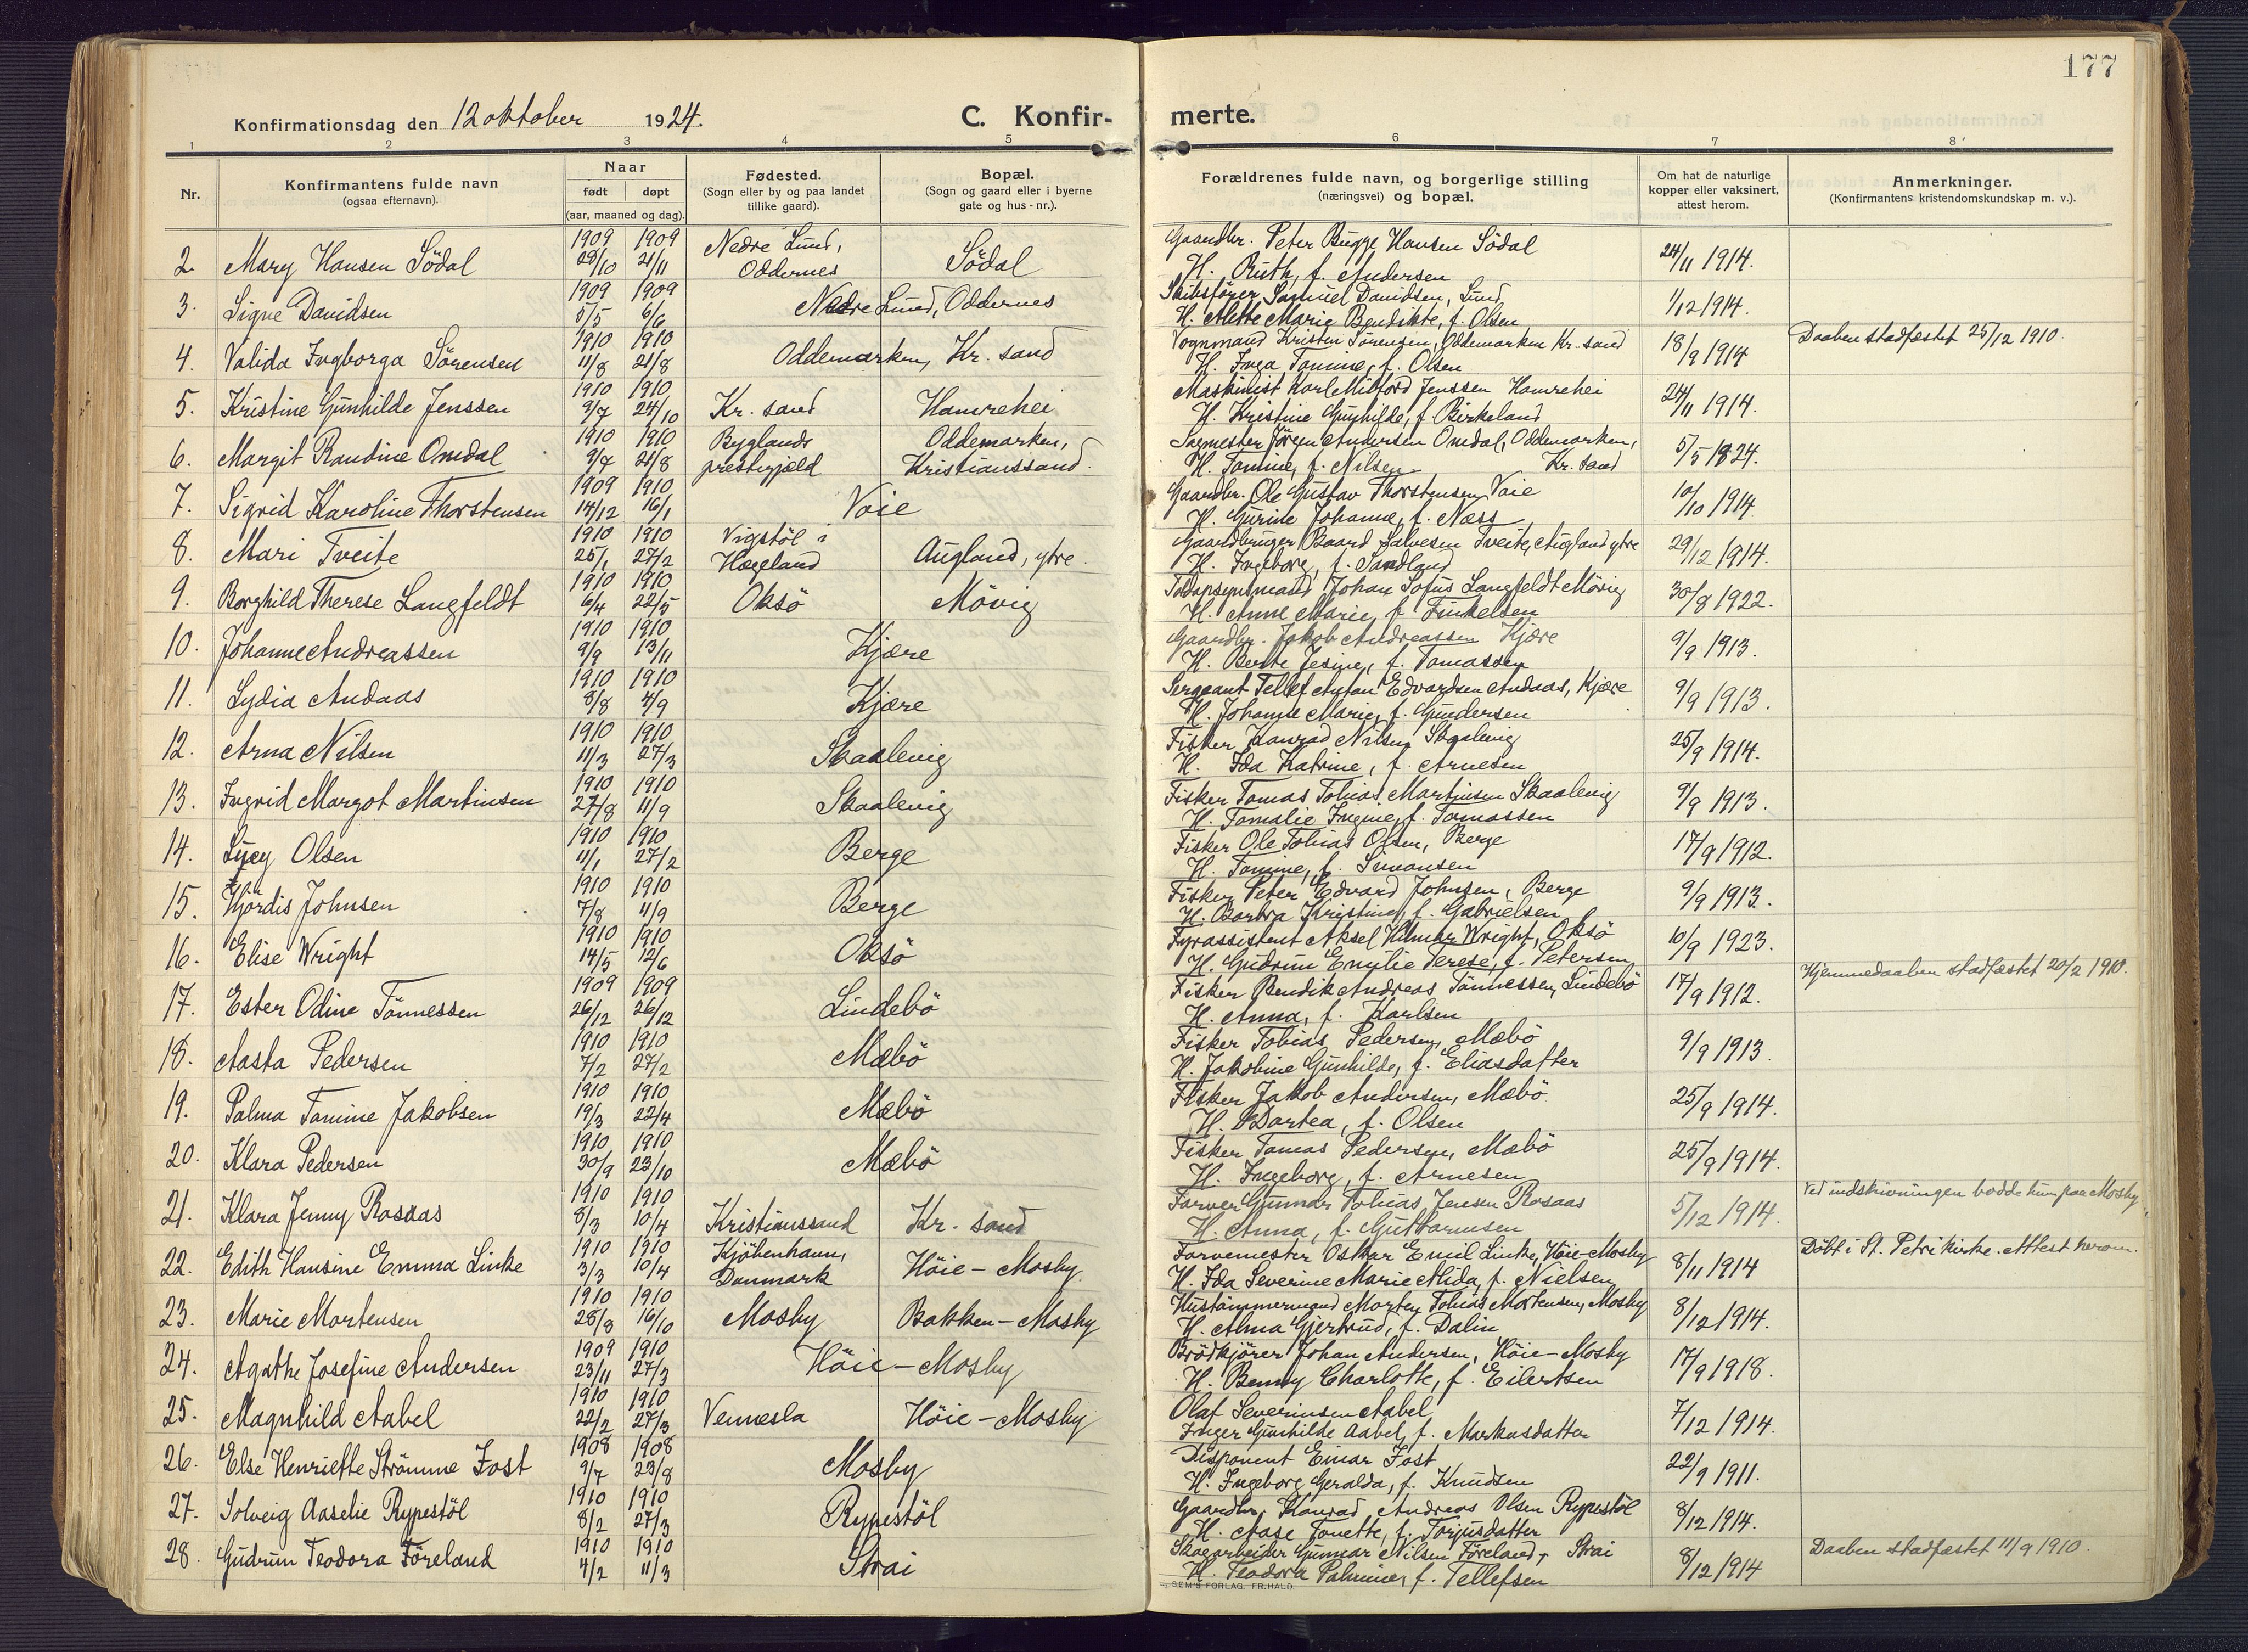 177
Konfirmationsdag den 12 oktober 1924.
C. Konfir-
merte.
1 2 3 4 5 6 7 8
Nr.
Konfirmantens fulde navn
(ogsaa efternavn).
Naar
født døpt
(aar, maaned og dag).
Fødested.
(Sogn eller by og paa landet
tillike gaard).
Bopæl.
(Sogn og gaard eller i byerne
gate og hus-nr.).
Forældrenes fulde navn, og borgerlige stilling
(næringsvei) og bopæl.
Om hat de naturlige
kopper eller vaksinert,
attest herom.
Anmerkninger.
(Konfirmantens kristendomskundskap m. v.).
1909 1909 Nedre Lund, Gaardbr. Peter Bugge Hansen Södal
2 Mary Hansen Södal 29/10 21/11 Oddernes Södal H. Ruth, f. Andersen 24/11 1914.
1909 1909 Skibsfører Samuel Davidsen, Lund
3. Signe Davidsen 5/5 6/6 Nedre Lund, Oddernes H. Alette Marie Bendikte, f. Olsen 1/12 1914.
1910 1910 Vognmand Kristen Sörensen, Oddemarken Kr. sand Daaben stadfæstet 25/12 1910.
4. Valida Ingborga Sörensen 11/8 21/8 Oddemarken, Kr. sand H. Inga Tomine, f. Olsen 18/9 1914
1910 1910 Maskinist Karl Milford Jenssen Hamrehei
5. Kristine Gunhilde Jenssen 9/7 24/10 Kr. sand Hamrehei H. Kristine Gunhilde, f. Birkeland 24/11 1914.
1910 1910 Byglands Oddemarken, Sagmester Jörgen Andersen Omdal, Oddemarken,
6. Margit Randine Omdal 9/7 21/8 prestegjeld Kristianssand. H. Tomine, f. Nilsen Kr. sand 5/5 1924.
1909 1910 Gaardbr. Ole Gustav Thorstensen Voie
7. Sigrid Karoline Thorstensen 14/12 16/1 Voie H. Gurine Johanne, f. Næss 10/10 1914.
1910 1910 Vigstöl i Gaardbruger Baard Salvesen Tveite, Augland ytre
8. Mari Tveite 25/1 27/2 Hægeland Augland, ytre. H. Ingeborg, f. Sandland 29/12 1914.
1910 1910 Toldopsynsmand Johan Sofus Langfeldt Mövig
9. Borghild Therese Langfeldt 6/4 22/5 Oksö Mövig H. Anne Marie, f. Finkelsen 30/8 1922.
1910 1910 Gaardbr. Jakob Andreassen Kjære
10. Johanne Andreassen 9/9 13/11 Kjære H. Berte Jesine, f. Tomassen 9/9 1913.
1910 1910 Sergeant Tellef Anton Edvardsen Andaas, Kjære
11. Lydia Andaas 8/8 4/9 Kjære H. Johanne Marie, f. Gundersen 9/9 1913.
1910 1910 Fisker Konrad Nilsen Skaalevig
12. Arna Nilsen 11/3 27/3 Skaalevig H. Ida Katrine, f. Arnesen 25/9 1914.
1910 1910 Fisker Tomas Tobias Martinsen Skaalevig
13. Ingrid Margot Martinsen 27/8 11/9 Skaalevig H. Tomalie Ingine, f. Tomassen 9/9 1913.
1910 1910 Fisker Ole Tobias Olsen, Berge
14. Lucy Olsen 4/1 27/2 Berge H. Tomine, f. Simonsen 17/9 1912.
1910 1910 Fisker Peter Edvard Johnsen, Berge
15. Hjördis Johnsen 7/8 11/9 Berge H. Barbra Kristine, f. Gabrielsen 9/9 1913.
1910 1910 Fyrassistent Aksel Hilmar Wright, Oksö
16. Elise Wright 14/5 12/6 Oksö H. Gudrun Emilie Terese, f. Petersen 10/9 1923.
1909 1909 Fisker Bendik Andreas Tönnessen, Lindebö Hjemmedaaben stadfæstet 20/2 1910.
17. Ester Odine Tönnessen 26/12 26/12 Lindebö H. Anna, f. Karlsen 17/9 1912.
1910 1910 Fisker Tobias Pedersen, Mæbö
18. Aasta Pedersen 7/2 27/2 Mæbö H. Jakobine Gunhilde, f. Eliasdatter 9/9 1913.
1910 1910 Fisker Jakob Andersen, Mæbö
19. Palma Tomine Jakobsen 19/3 22/4 Mæbö H. Dortea, f. Olsen 25/9 1914.
1910 1910 Fisker Tomas Pedersen, Mæbö
20. Klara Pedersen 30/9 23/10 Mæbö H. Ingeborg, f. Arnesen 25/9 1914.
1910 1910 Farver Gunnar Tobias Jensen Rosaas Ved indskrivningen bodde hun paa Mosby.
21. Klara Jenny Rosaas 8/3 10/4 Kristianssand Kr. sand H. Anna, f. Guttormsen 5/12 1914.
1910 1910 Kjöbenhavn, Farvemester Oskar Emil Linke, Höie-Mosby Döbt i St. Petri kirke. Attest herom.
22. Edith Hansine Emma Linke 3/3 10/4 Danmark Höie-Mosby H. Ida Severine Marie Alida, f. Nielsen 8/11 1914
1910 1910 Hustömmermand Morten Tobias Mortensen, Mosby
23. Marie Mortensen 28/8 16/10 Mosby Bakken-Mosby H. Alma Gjertrud, f. Dalin 8/12 1914.
1909 1910 Brödkjörer Johan Andersen, Höie-Mosby
24. Agathe Josefine Andersen 23/11 27/3 Höie-Mosby H. Benny Charlotte, f. Eilertsen 17/9 1918.
1910 1910 Olaf Severinsen Aabel
25. Magnhild Aabel 22/2 27/3 Vennesla Höie-Mosby Inger Gunhilde Aabel, f. Markusdatter 7/12 1914.
1908 1908 Disponent Einar Fost
26. Else Henriette Strömme Fost 9/7 23/8 Mosby H. Ingeborg Geralda, f. Knudsen 22/9 1911.
1910 1910 Gaardbr. Konrad Andreas Olsen Rypestöl
27. Solveig Aaselie Rypestöl 8/2 27/3 Rypestöl H. Aase Tonette, f. Torjusdatter 8/12 1914.
1910 1910 Skogarbeider Gunnar Nilsen Föreland, Strai Daaben stadfæstet 11/9 1910.
28. Gudrun Teodora Föreland 4/2 11/3 Strai H. Teodora Palmine, f. Tellefsen 8/12 1914
SEM'S FORLAG, FR.HALD.